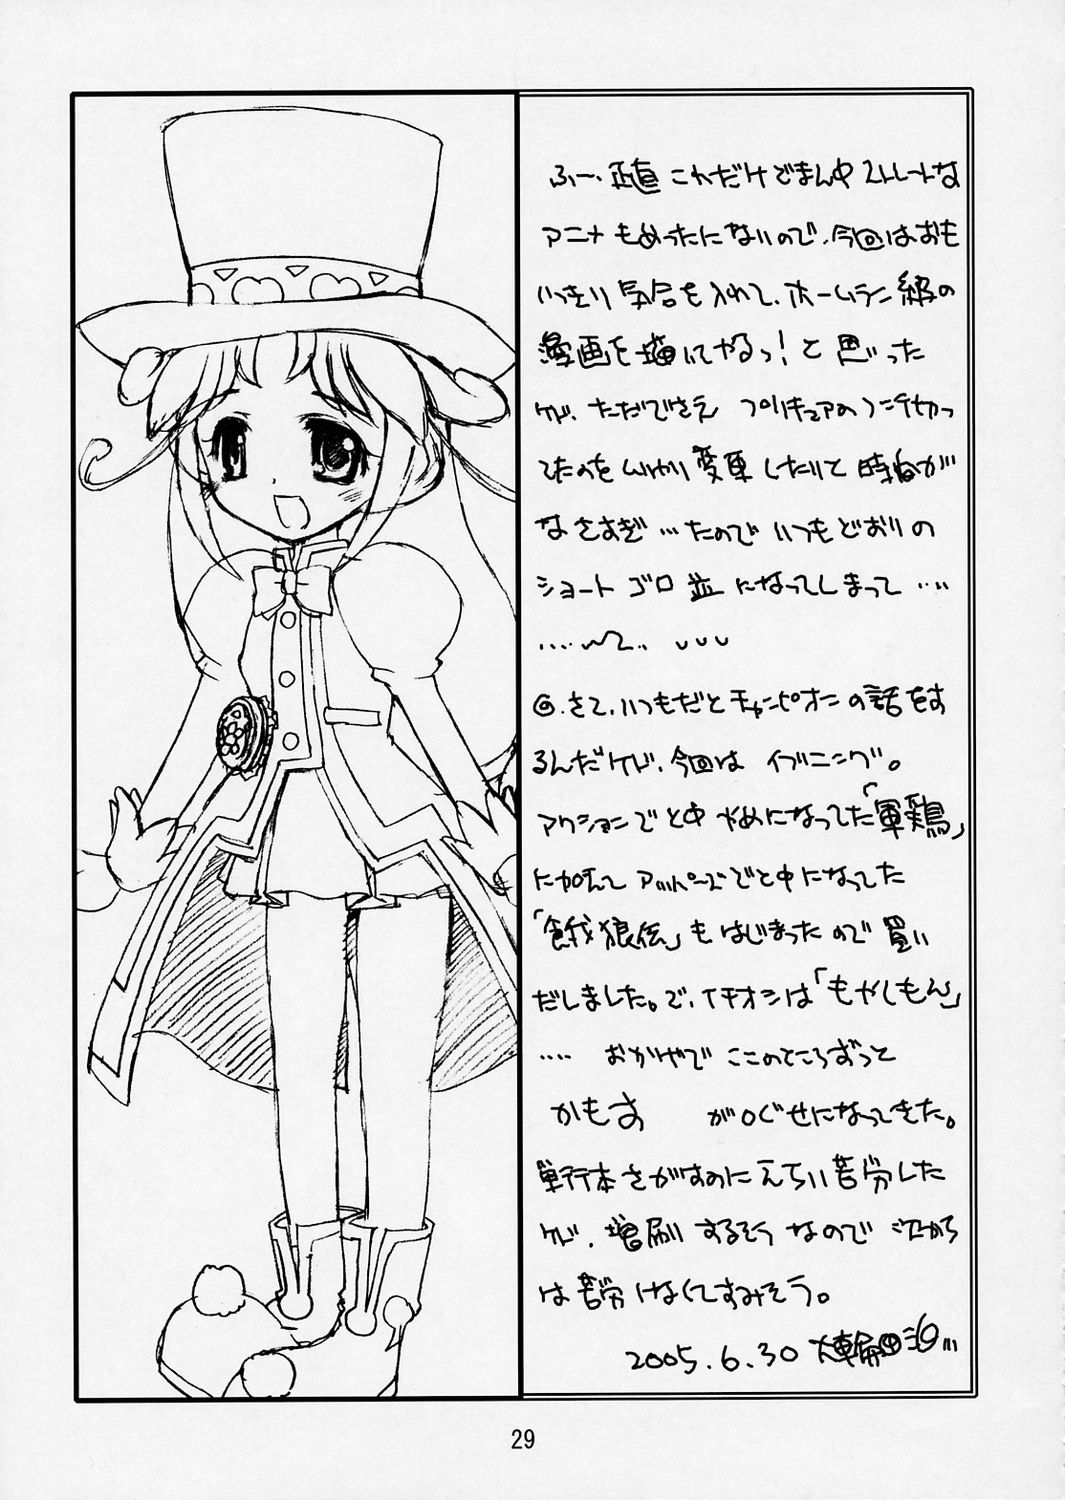 ふー、正直 これだけどまん中ストレートな
アニメもめったにないので、今回はおも
いっきり気合を入れて、ホームラン級の
漫画を描いてやるっ！と思いった
けど、ただでさえ プリキュアの 切っ
てたのを 変更したりして時間が
なさすぎ…たのでいつもどおりの
ショートゴロ並になってしまって‥‥
◎.さて、いつもだとチャンピオンの話をす
るんだけど、今回はイブニング。
アクションでと中やめになってた「軍鶏」
に加えてアッパーズでと中になってた
「餓狼伝」もはじまったので買い
だしました。で、イチオシは「もやしもん」
‥‥ おかげでここのところずっと
かもす が口ぐせになってきた。
単行本さがすのにえらい苦労した
けど、増刷するそうなので 次から
は苦労はなくてすみそう。
2005.6.30
29